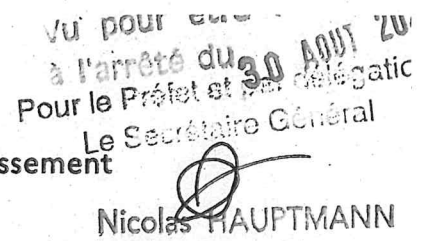 Vu pour être
à l'arrêté du 30 AOUT 20
Pour le Préfet et par délégatio
Le Secrétaire Général
ssement
Nicolas HAUPTMANN